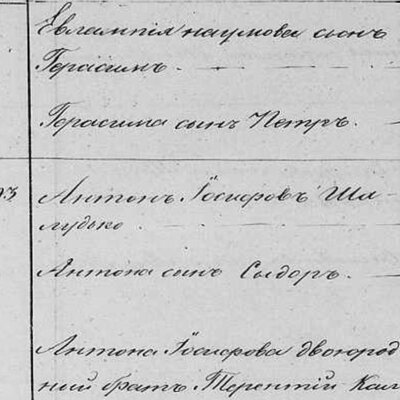 Евлампия Наумова сынъ
Герасимъ.
Герасима сынъ Петръ.
Антонъ Іосифовъ Ша-
лудько.
Антона сынъ Сыдоръ.
Антона Іосифова двоюрод
ний братъ Терентій Кал